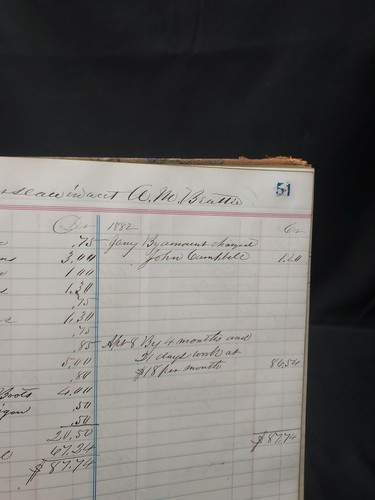 A. M. Beattie 51
Dr 1882 Cr
.75 Jany By amount charged
3.00 John Campbell 1.20
1.00
1.30
.75
1.30
.75
.85 Apr 8 By 4 months and
5.00 21 days work at
.80 $18 per month 86.54
Boots 4.00
.50
.50
20.50 $87.74
67.24
$87.74